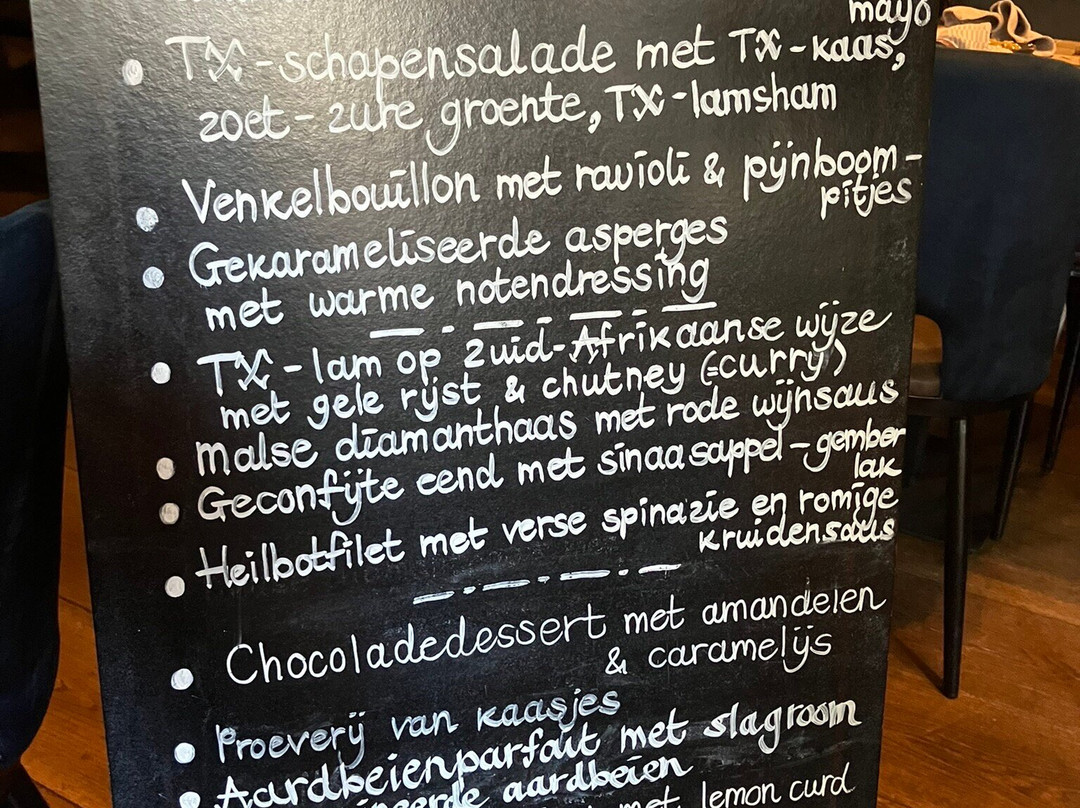 mayo
TX-schapensalade met TX-kaas,
zoet-zure groente, TX-lamsham
Venkelbouillon met ravioli & pijnboom-
pitjes
Gekarameliseerde asperges
met warme notendressing
TX-lam op Zuid-Afrikaanse wijze
met gele rijst & chutney (=curry)
malse diamanthaas met rode wijnsaus
Geconfijte eend met sinaasappel-gember
lak
Heilbotfilet met verse spinazie en romige
kruidensaus
Chocoladedessert met amandelen
& caramelijs
Proeverij van kaasjes
Aardbeienparfait met slagroom
aardbeien
met lemon curd